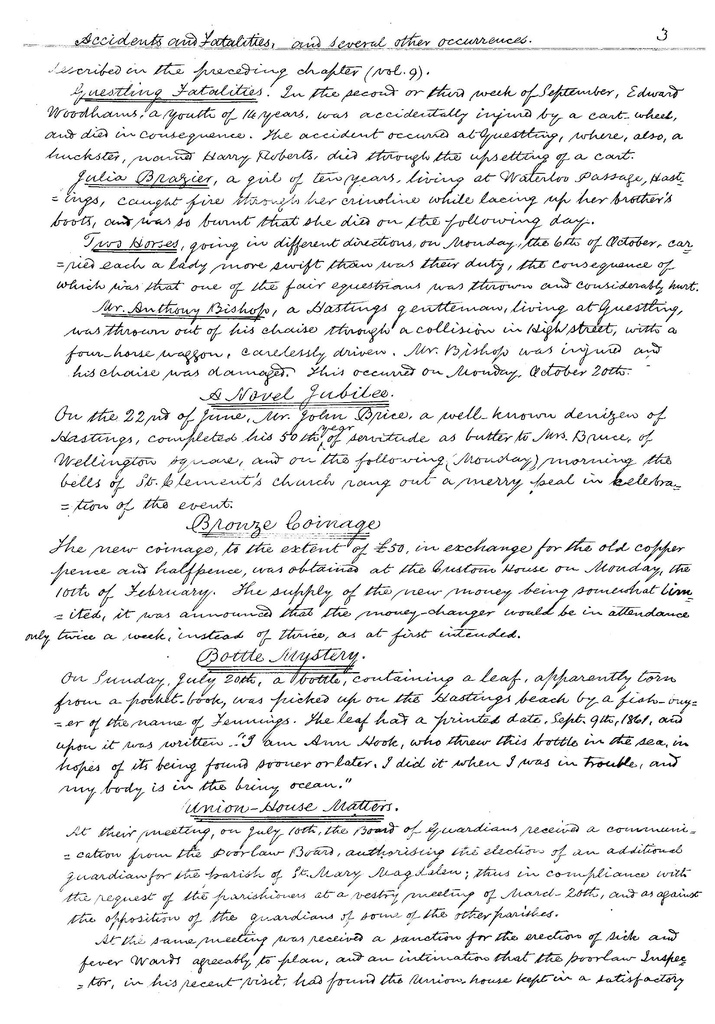 Accidents and Fatalities, and several other occurrences. 3
described in the preceding chapter (vol. 9).
Guestling Fatalities. In the second or third week of September, Edward
Woodhams, a youth of 14 years, was accidentally injured by a cart-wheel,
and died in consequence. The accident occured at Guestling, where, also, a
huckster, named Harry Roberts, died through the upsetting of a cart.
Julia Brazier, a girl of ten years, living at Waterloo Passage, Hast-
=ings, caught fire through her crinoline while lacing up her brother's
boots, and was so burnt that she died on the following day.
Two Horses, going in different directions, on Monday, the 6th of October, car-
=ried each a lady more swift than was their duty, the consequence of
which was that one of the fair equestrians was thrown and considerably hurt.
Mr. Anthony Bishop, a Hastings gentleman, living at Guestling,
was thrown out of his chaise through a collision in High street, with a
four-horse waggon, carelessly driven. Mr. Bishop was injured and
his chaise was damaged. This occured on Monday, October 20th.
A Novel Jubilee.
On the 22nd of June, Mr. John Brice, a well-known denizen of
Hastings, completed his 50th year of servitude as butler to Mrs. Bruce, of
Wellington square, and on the following (Monday) morning the
bells of St. Clement's church rang out a merry peal in celebra-
=tion of the event.
Bronze Coinage
The new coinage, to the extent of £50, in exchange for the old copper
pence and halfpence, was obtained at the Custom House on Monday, the
10th of February. The supply of the new money being somewhat lim-
=ited, it was announced that the money-changer would be in attendance
only twice a week, instead of thrice, as at first intended.
Bottle Mystery.
On Sunday, July 20th, a bottle, containing a leaf, apparently torn
from a pocket-book, was picked up on the Hastings beach by a fish-buy-
=er of the name of Jennings. The leaf had a printed date, Sept. 9th, 1861, and
upon it was written.. "I am Ann Hook, who threw this bottle in the sea, in
hopes of its being found sooner or later. I did it when I was in trouble, and
my body is in the briny ocean."
Union-House Matters.
At their meeting, on July 10th, the Board of Guardians received a communi-
=cation from the Poorlaw Board, authorising the election of an additional
guardian for the parish of St. Mary Magdalen; thus in compliance with
the request of the parishioners at a vestry meeting of March 20th, and as against
the opposition of the guardians of some of the other parishes.
At the same meeting was received a sanction for the erection of sick and
fever Wards agreeably to plan, and an intimation that the poorlaw Inspec-
=tor, in his recent visit, had found the Union house kept in a satisfactory